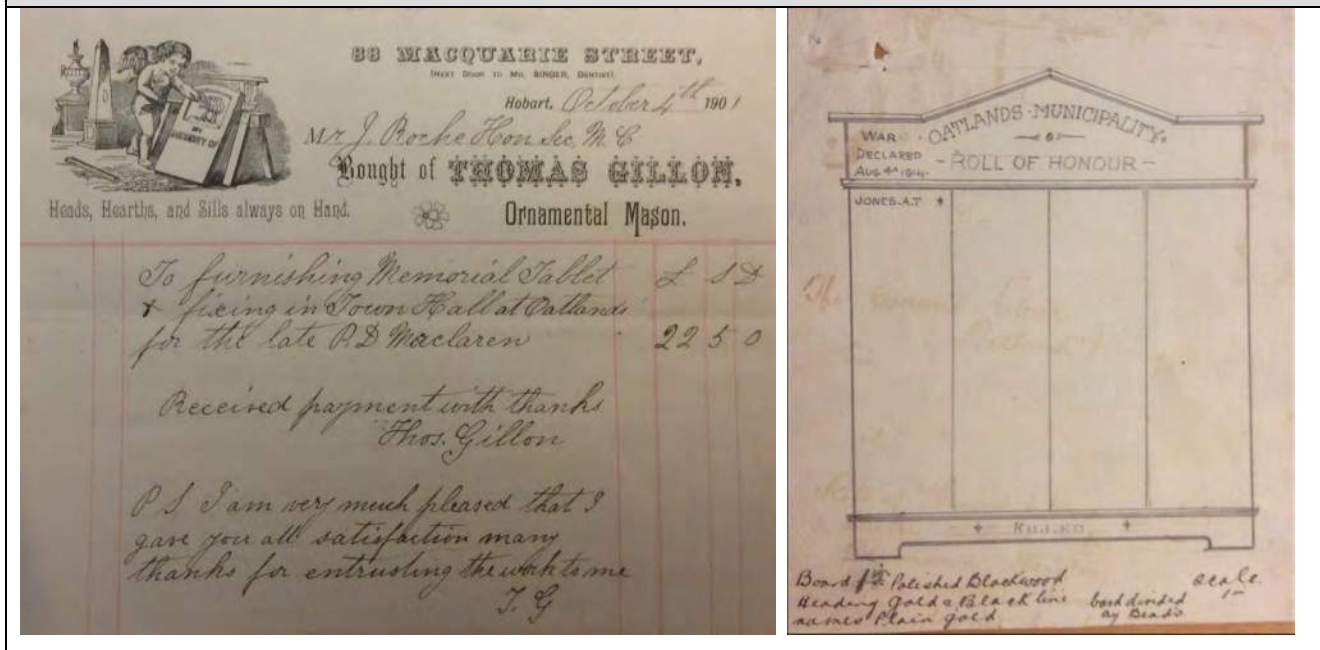 88 MACQUARIE STREET,
(NEXT DOOR TO MR. BINDER, DENTIST).
Hobart, October 4th 1901
Mr J. Roche Hon Sec M. C
Bought of THOMAS GILLON,
Heads, Hearths, and Sills always on Hand.
Ornamental Mason.
IN
MEMORY OF
To furnishing Memorial Tablet £ S D
& fixing in Town Hall at Oatlands
for the late P. D Maclaren 22 5 0
Received payment with thanks
Thos. Gillon
P S I am very much pleased that I
gave you all satisfaction many
thanks for entrusting the work to me
T. G
OATLANDS MUNICIPALITY.
WAR
DECLARED
AUG 4th 1914.
- ROLL OF HONOUR -
JONES. A.T +
+ KILLED +
Board Polished Blackwood
Heading Gold & Black line
names Plain gold
back divided
by Beads
scale